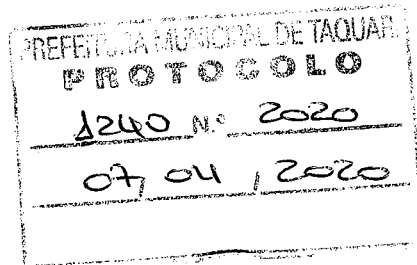 PREFEITURA MUNICIPAL DE TAQUARI
PROTOCOLO
1240 N.º 2020
07, 04, 2020